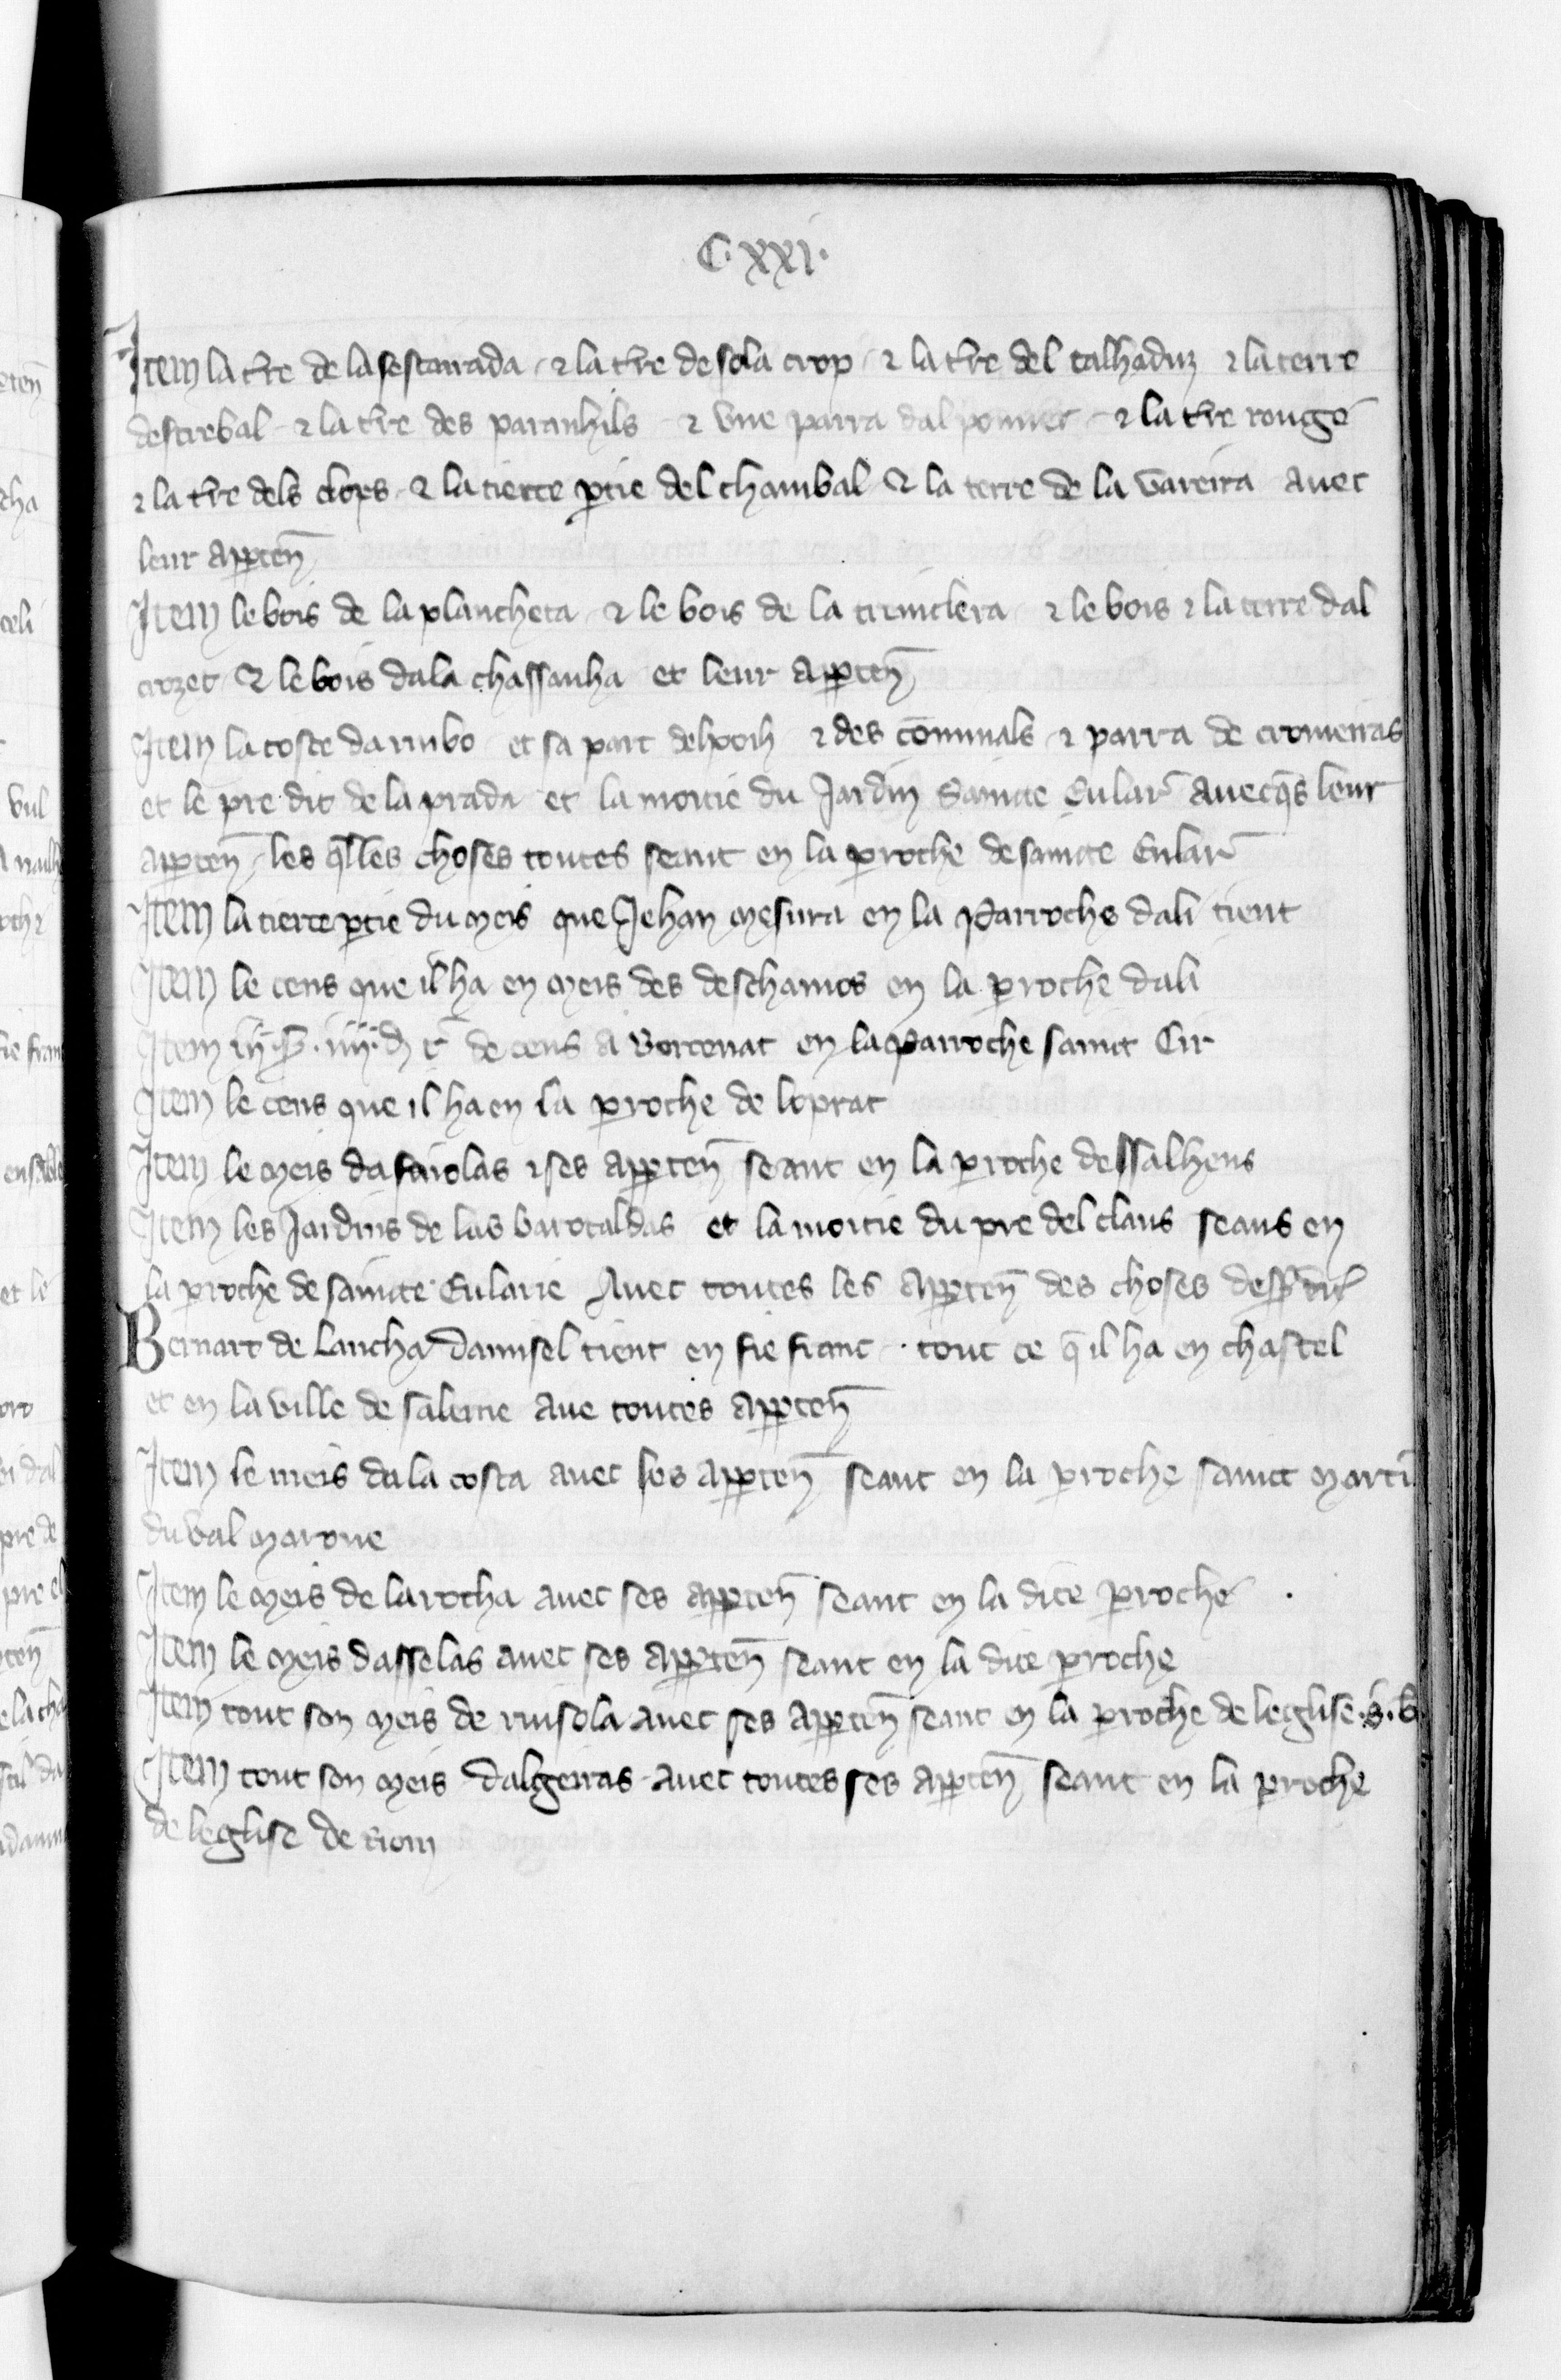 C.XXI.
Item la t̃re de la sestairada ⁊ la t̃re de sola crop ⁊ la t̃re del talhaduz ⁊ la terre
destrebal ⁊ la t̃re des paranhils ⁊ vne parra dal ponnet ⁊ la t̃re rouge
⁊ la t̃re dels clops ⁊ la tierce ꝑtie del chambal ⁊ la terre de la vareira avec
leur apꝑten̄
Item le bois de la plancheta ⁊ le bois de la treniclera ⁊ le bois ⁊ la terre dal
crozet ⁊ le bois dala chassanha et leur apꝑten̄
Item la coste darnbo et sa part delpoih ⁊ des cōmunals ⁊ parra de cromeiras
et le pre dit de la prada et la moitie du Jardin Sainte Eular̄ avecq̄s leur
apꝑten̄ les q̄lles choses toutes seant en la ꝑroche de sainte Eular̄
Item la tierce ꝑtie du meis que Jehan mesura en la Parroche dali tient
Item le cens que il ha en meis des deschamps en la ꝑroche dali
Item iij. s̄. iiij. d. t̄ de cens a Bortenat en la Parroche saint Cir
Item le cens que il ha en la ꝑroche de loprat
Item le meis da fariolas ⁊ ses apꝑten̄ seant en la ꝑroche dessalhens
Item les Jardins de las barotaldas et la moitie du pre del claus seans en
la ꝑroche de sainte Eularie Avec toutes les apꝑten̄ des choses dess̄ dit̄
Bernart de Lancha damisel tient en fie franc . tout ce q̄ il ha en chastel
et en la ville de salerne ave toutes apꝑten̄
Item le meis dala costa avec ses apꝑten̄ seant en la ꝑroche saint martī
du val marone
Item le meis de larocha avec ses apꝑten̄ seant en la dite ꝑroche
Item le meis dasselas avec ses apꝑten̄ seant en la dite ꝑroche
Item tout son meis de riusola avec ses apꝑten̄ seant en la ꝑroche de leglise .s. b.
Item tout son meis dalgeiras avec toutes ses apꝑten̄ seant en la ꝑroche
de leglise de riom